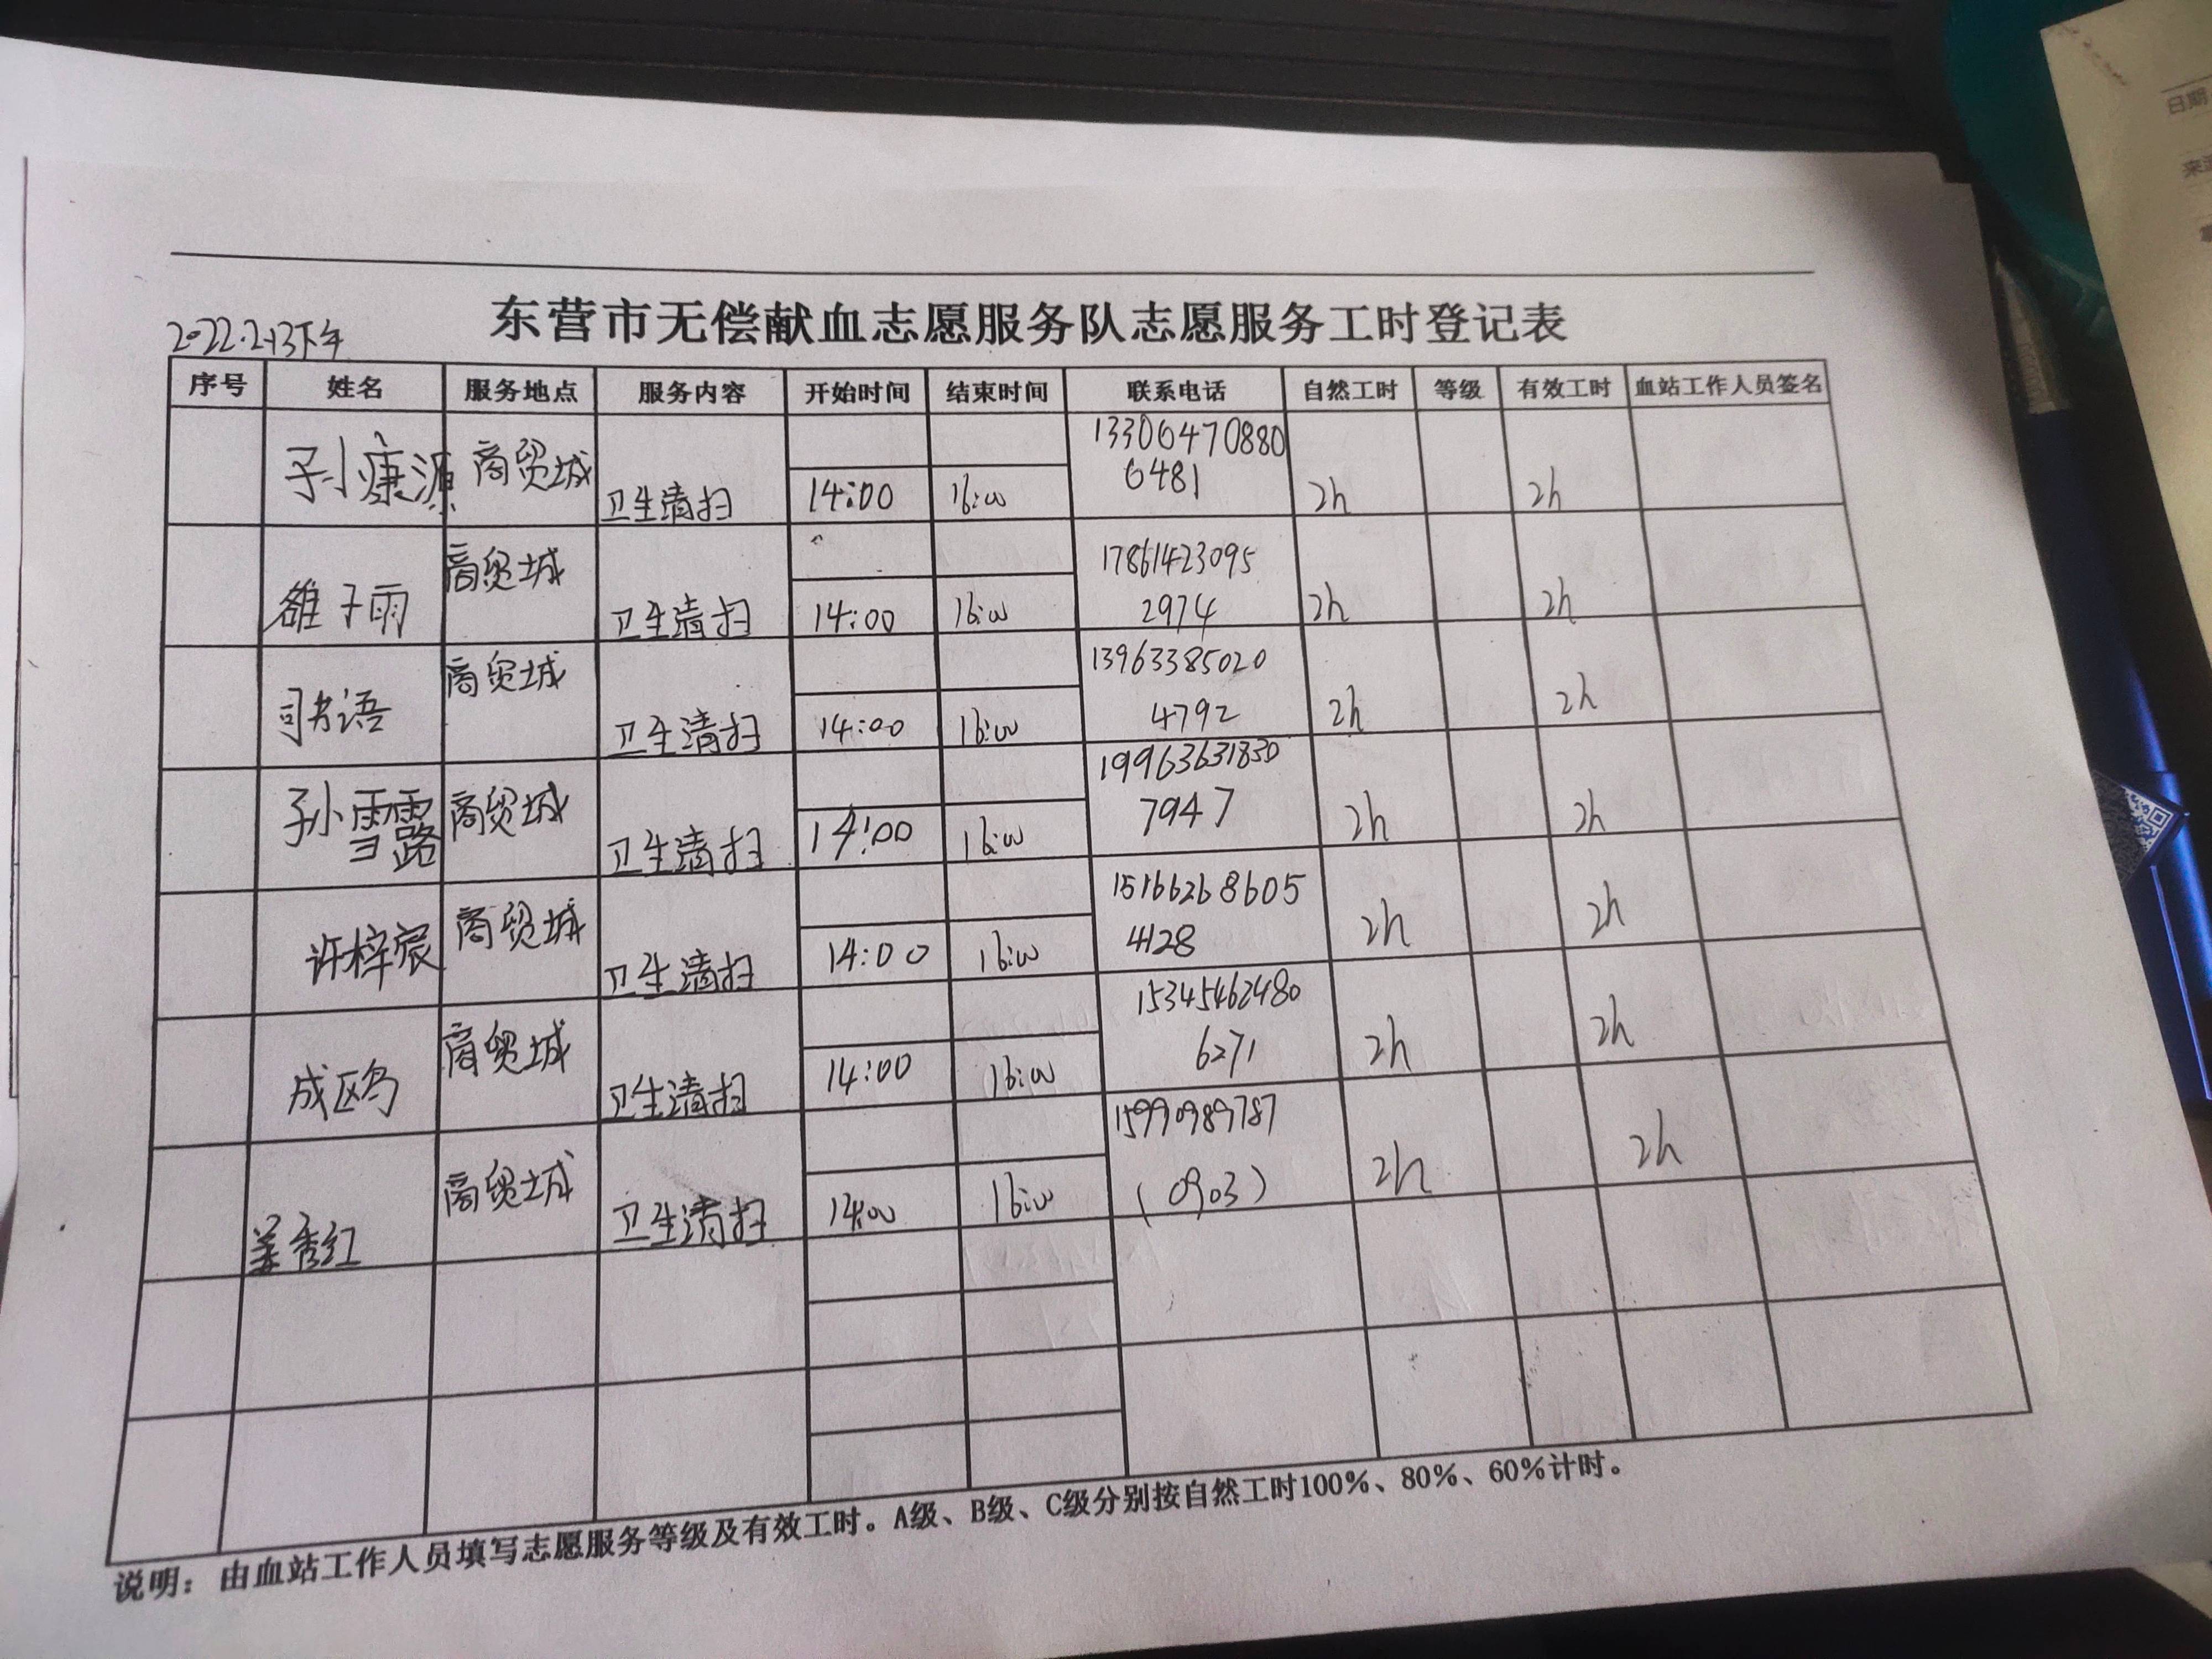 东营市无偿献血志愿服务队志愿服务工时登记表
2022.2.13下午
序号 姓名 服务地点 服务内容 开始时间 结束时间 联系电话 自然工时 等级 有效工时 血站工作人员签名
孙康源 商贸城 卫生清扫 14:00 16:00 13306470880 2h 2h
6481
雒子雨 商贸城 卫生清扫 14:00 16:00 17861423095 2h 2h
2974
司书语 商贸城 卫生清扫 14:00 16:00 13963385020 2h 2h
4792
孙雪露 商贸城 卫生清扫 14:00 16:00 19963631830 2h 2h
7947
许梓宸 商贸城 卫生清扫 14:00 16:00 15166268605 2h 2h
4128
成鸥 商贸城 卫生清扫 14:00 16:00 15345462480 2h 2h
6271
姜秀红 商贸城 卫生清扫 14:00 16:00 15990989787 2h 2h
(0903)
说明：由血站工作人员填写志愿服务等级及有效工时。A级、B级、C级分别按自然工时100%、80%、60%计时。
日期